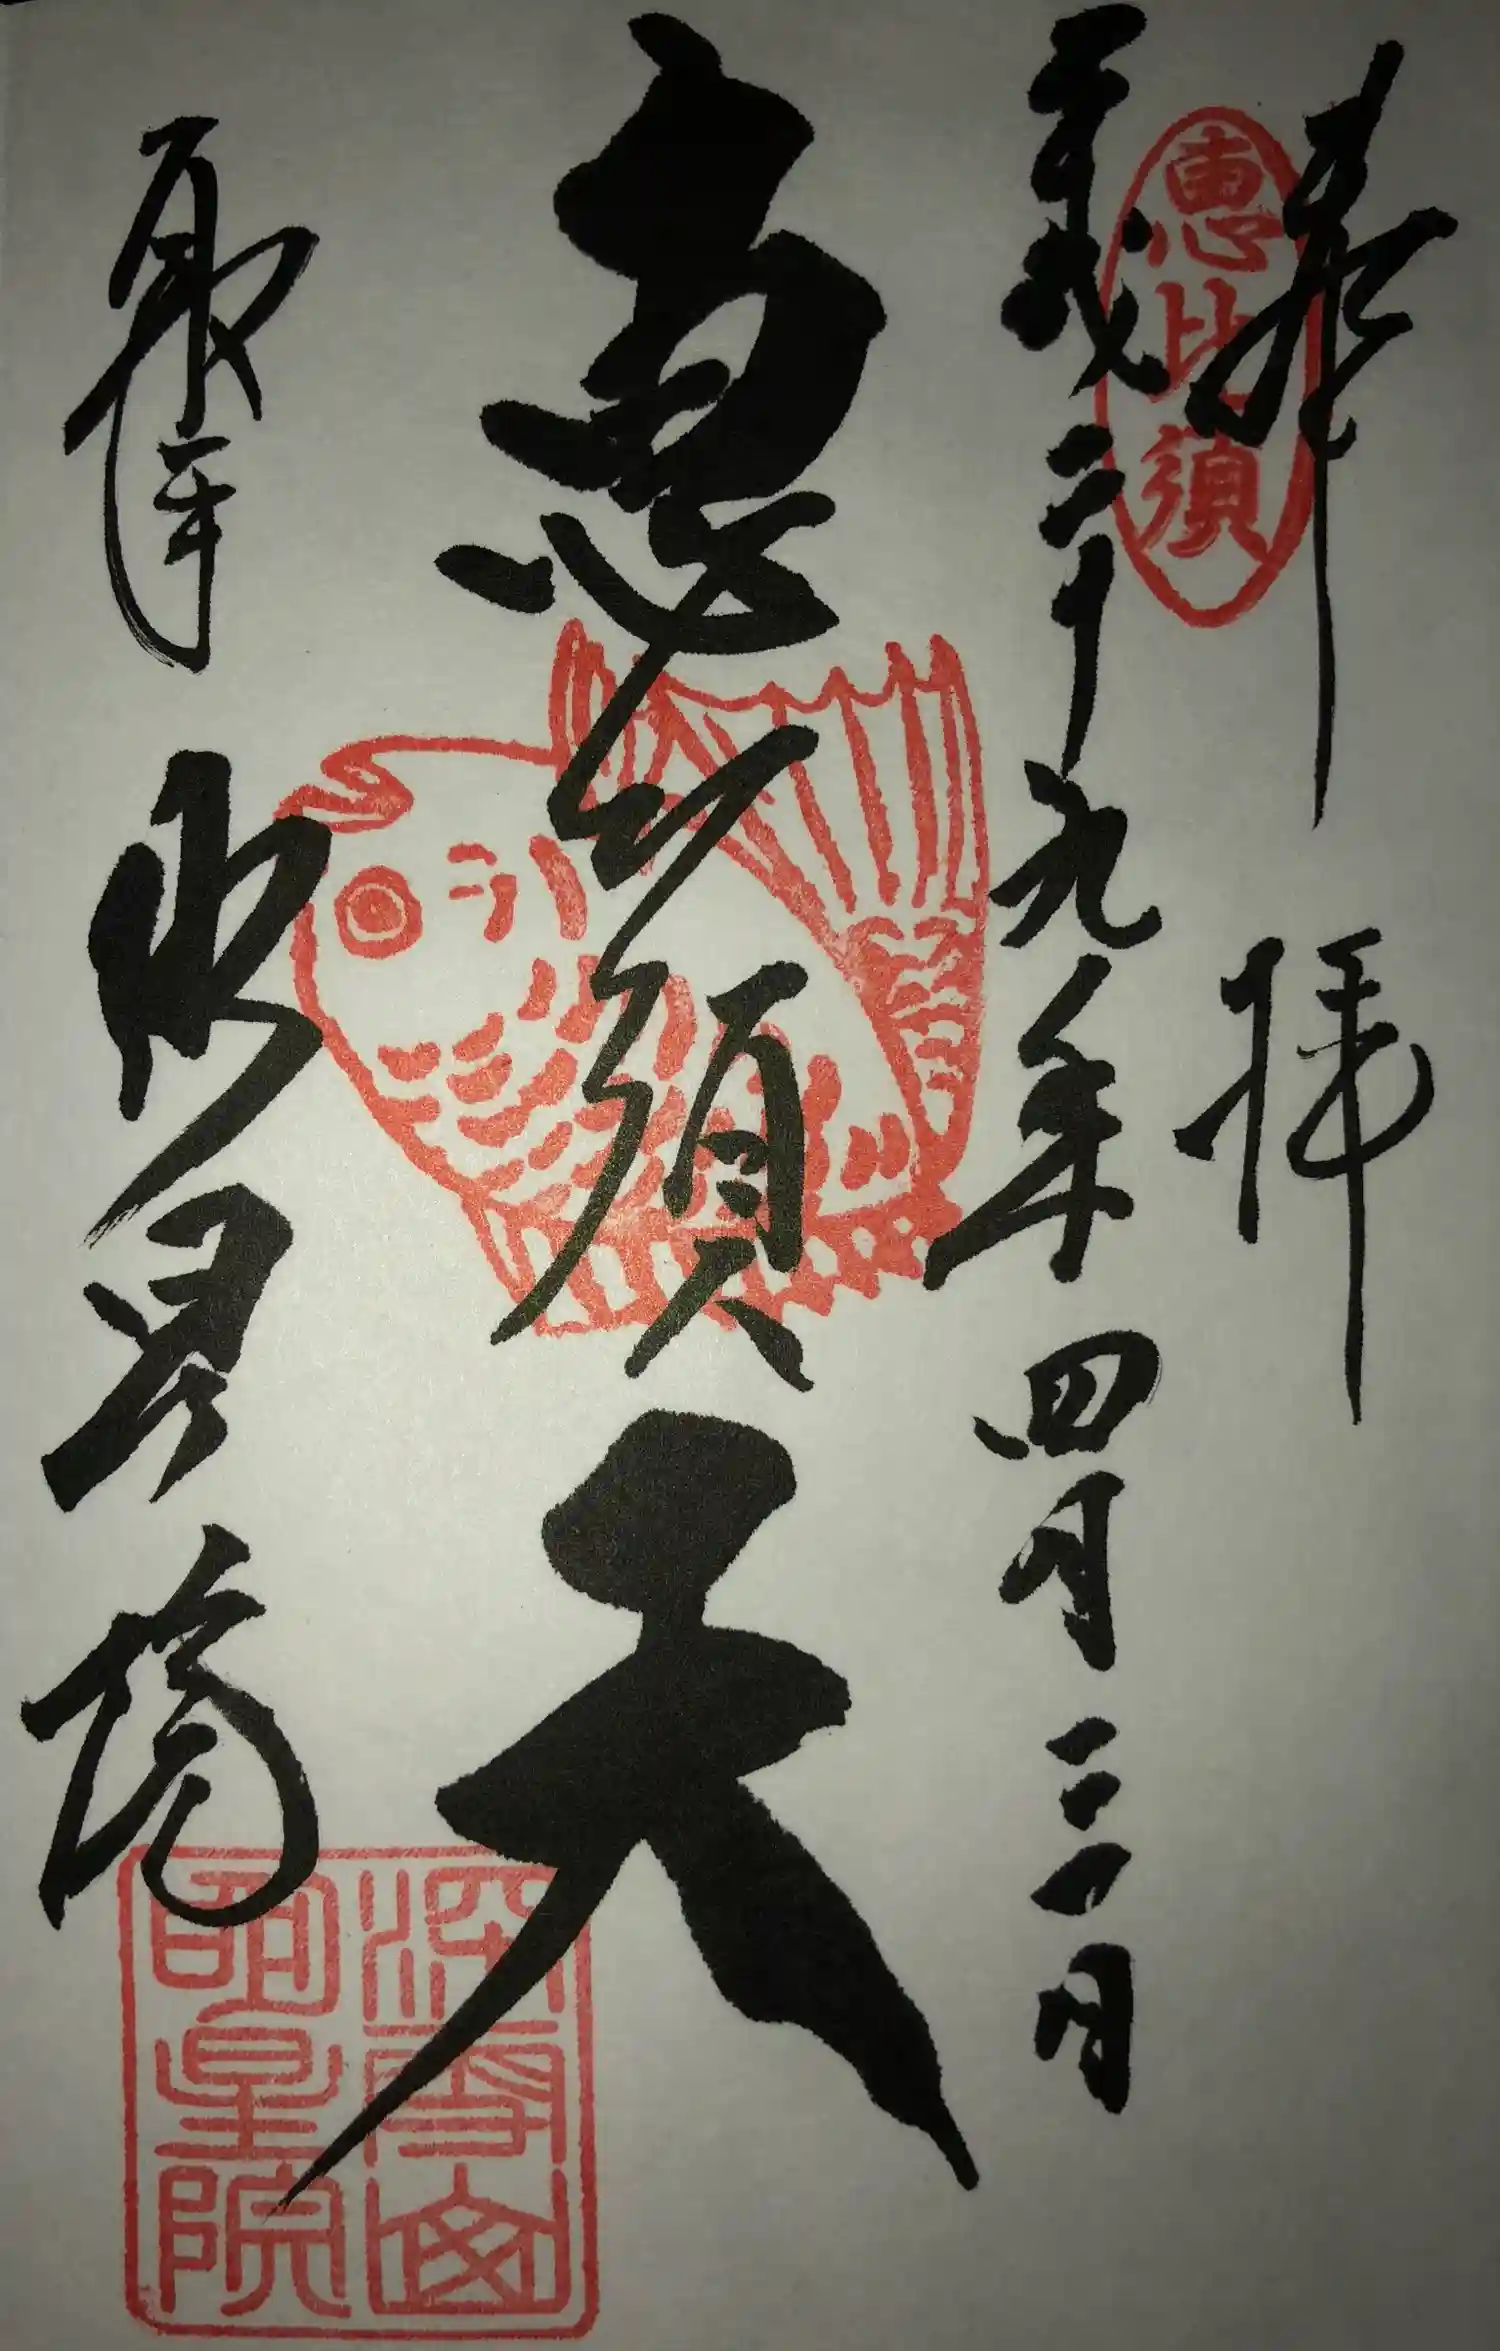 奉拝
恵比須
平成二十九年四月三日
恵比須天
取手 明星院
深雪山
明星院